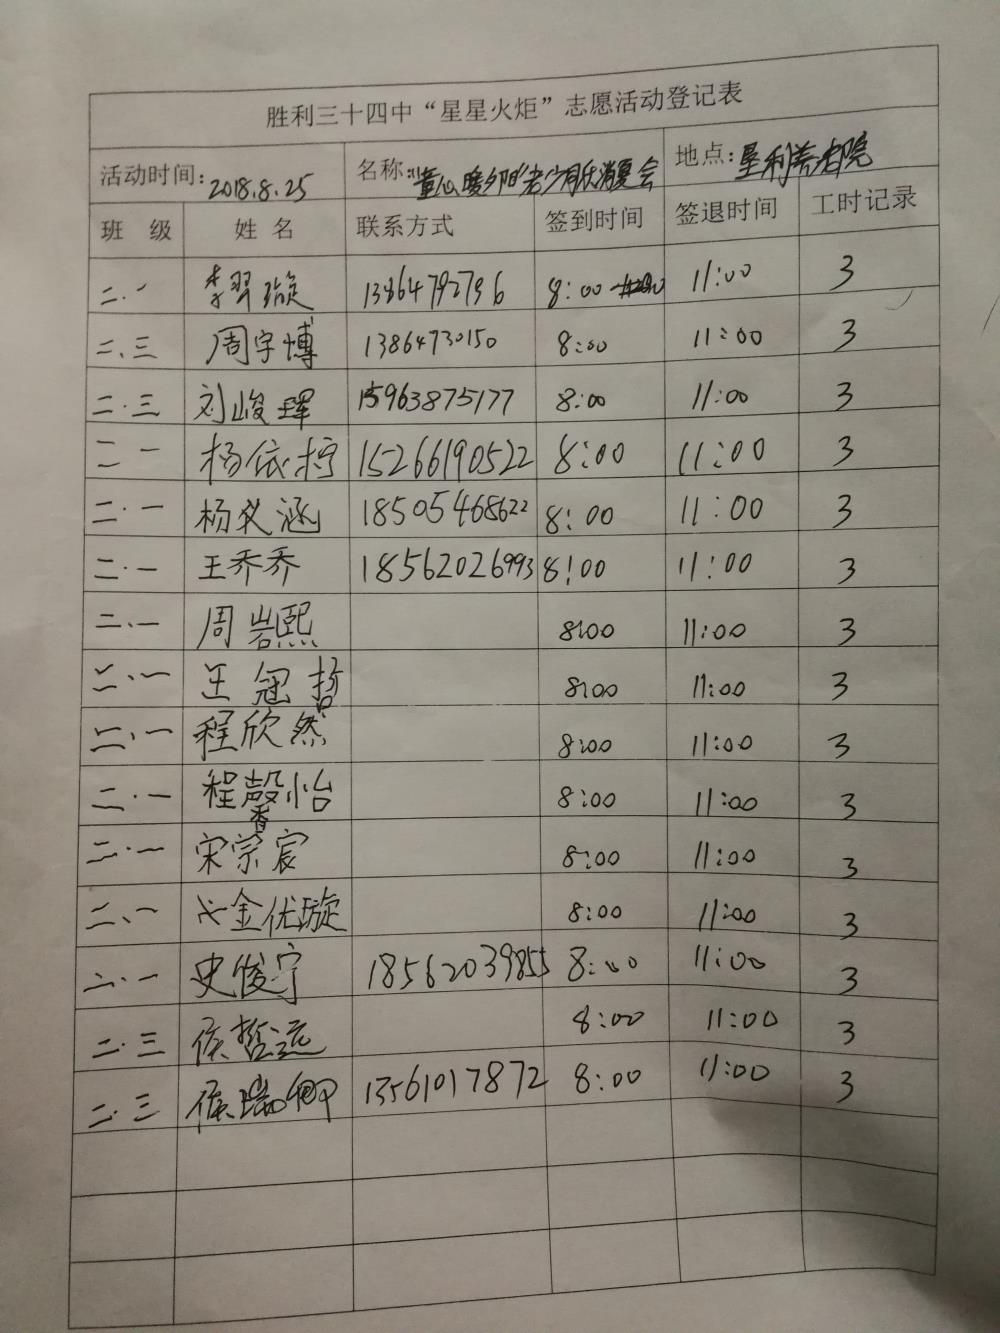 胜利三十四中“星星火炬”志愿活动登记表
活动时间:2018.8.25 名称:“童心暖夕阳”老少同欢消夏会 地点:垦利养老院
班 级 姓 名 联系方式 签到时间 签退时间 工时记录
二.一 李羿璇 13864792796 8:00 11:00 3
二、三 周宇博 13864730150 8:00 11:00 3
二.三 刘峻珲 15963875177 8:00 11:00 3
二一 杨依柠 15266190522 8:00 11:00 3
二.一 杨义涵 18505468622 8:00 11:00 3
二.一 王乔乔 18562026993 8:00 11:00 3
二、一 周岩熙 8:00 11:00 3
二、一 王冠哲 8:00 11:00 3
二、一 程欣然 8:00 11:00 3
二.一 程馨怡 8:00 11:00 3
二.一 宋宗宸 8:00 11:00 3
二、一 金优璇 8:00 11:00 3
二.一 史俊宁 18562039855 8:00 11:00 3
二.三 侯哲远 8:00 11:00 3
二.三 侯瑞卿 13561017872 8:00 11:00 3